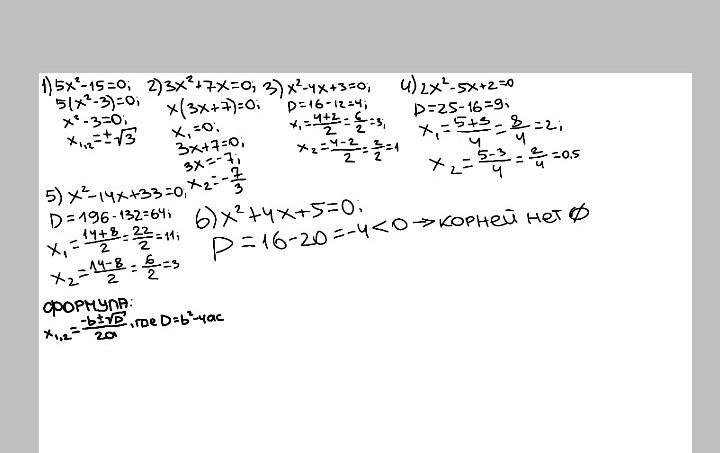 1) 5x²-15=0;
5(x²-3)=0;
x²-3=0;
x₁,₂=±√3
2) 3x²+7x=0;
x(3x+7)=0;
x₁=0;
3x+7=0;
3x=-7;
x₂=-7/3
3) x²-4x+3=0;
D=16-12=4;
x₁=(4+2)/2=6/2=3;
x₂=(4-2)/2=2/2=1
4) 2x²-5x+2=0
D=25-16=9;
x₁=(5+3)/4=8/4=2;
x₂=(5-3)/4=2/4=0.5
5) x²-14x+33=0;
D=196-132=64;
x₁=(14+8)/2=22/2=11;
x₂=(14-8)/2=6/2=3
6) x²+4x+5=0;
D=16-20=-4<0→корней нет ∅
ФОРМУЛА:
x₁,₂=(-b±√D)/2a, где D=b²-4ac